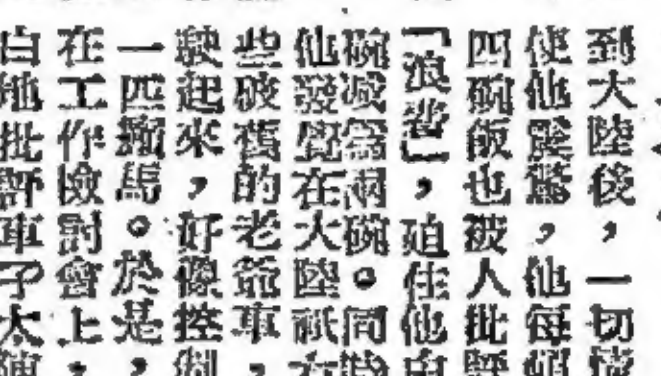 到大陸後，一切情
使他震驚，他每頓
四碗飯也被人批評
「浪費」，廹住他由
碗減爲兩碗。同時
他發覺在大陸祇有
些破舊的老爺車，
駛起來，好像控制
一匹癩馬。於是，
在工作檢討會上，
白地批評車子太陳